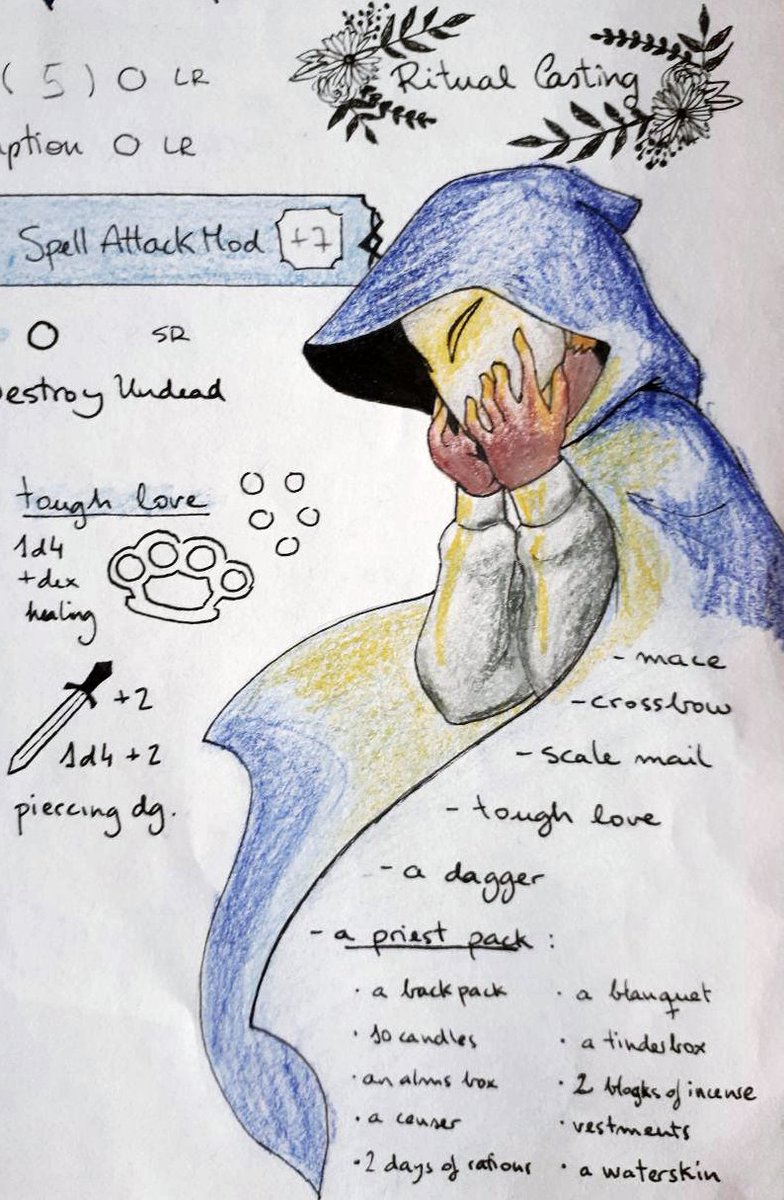 ( 5 ) O LR
Ritual Casting
ption O LR
Spell Attack Mod +7
O SR
estroy Undead
tough love
1d4
+dex
healing
+2
1d4 + 2
piercing dg.
- mace
- crossbow
- scale mail
- tough love
- a dagger
- a priest pack :
· a backpack
· 10 candles
· an alms box
· a censer
· 2 days of rations
· a blanquet
· a tinderbox
· 2 blogks of incense
· vestments
· a waterskin